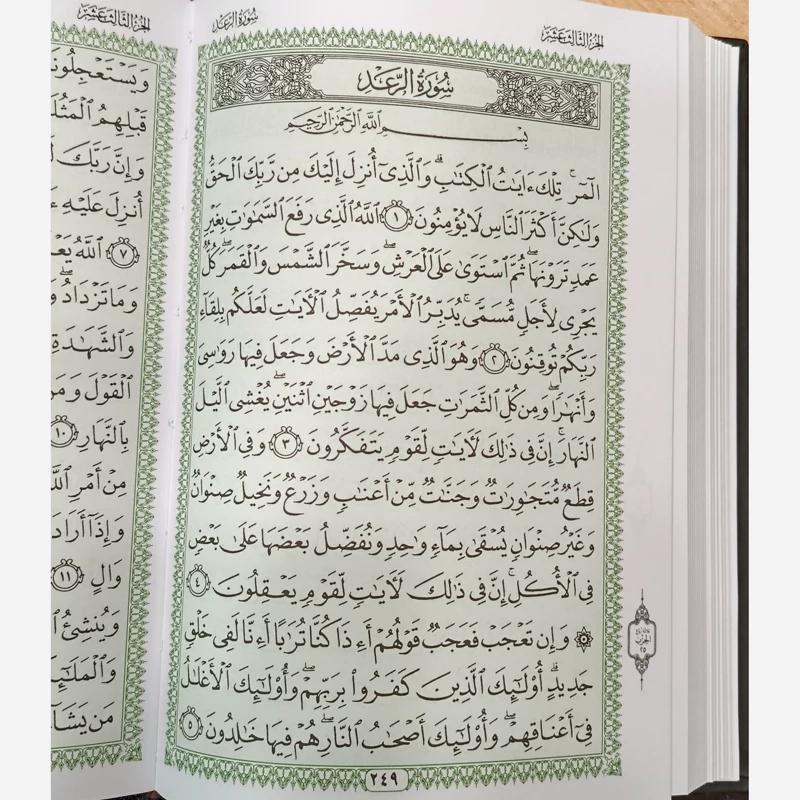 سُورَةُ الرَّعْدِ
الجُزْءُ الثَّالِثَ عَشَرَ
سُورَةُ الرَّعْدِ
بِسْمِ اللَّهِ الرَّحْمَٰنِ الرَّحِيمِ
الٓمٓرۚ تِلْكَ ءَايَٰتُ ٱلْكِتَٰبِۗ وَٱلَّذِىٓ أُنزِلَ إِلَيْكَ مِن رَّبِّكَ ٱلْحَقُّ
وَلَٰكِنَّ أَكْثَرَ ٱلنَّاسِ لَا يُؤْمِنُونَ ١ ٱللَّهُ ٱلَّذِى رَفَعَ ٱلسَّمَٰوَٰتِ بِغَيْرِ
عَمَدٍ تَرَوْنَهَاۖ ثُمَّ ٱسْتَوَىٰ عَلَى ٱلْعَرْشِۖ وَسَخَّرَ ٱلشَّمْسَ وَٱلْقَمَرَۖ كُلٌّ
يَجْرِى لِأَجَلٍ مُّسَمًّىۚ يُدَبِّرُ ٱلْأَمْرَ يُفَصِّلُ ٱلْءَايَٰتِ لَعَلَّكُم بِلِقَآءِ
رَبِّكُمْ تُوقِنُونَ ٢ وَهُوَ ٱلَّذِى مَدَّ ٱلْأَرْضَ وَجَعَلَ فِيهَا رَوَٰسِىَ
وَأَنْهَٰرًاۖ وَمِن كُلِّ ٱلثَّمَرَٰتِ جَعَلَ فِيهَا زَوْجَيْنِ ٱثْنَيْنِۖ يُغْشِى ٱلَّيْلَ
ٱلنَّهَارَۚ إِنَّ فِى ذَٰلِكَ لَءَايَٰتٍ لِّقَوْمٍ يَتَفَكَّرُونَ ٣ وَفِى ٱلْأَرْضِ
قِطَعٌ مُّتَجَٰوِرَٰتٌ وَجَنَّٰتٌ مِّنْ أَعْنَٰبٍ وَزَرْعٌ وَنَخِيلٌ صِنْوَانٌ
وَغَيْرُ صِنْوَانٍ يُسْقَىٰ بِمَآءٍ وَٰحِدٍ وَنُفَضِّلُ بَعْضَهَا عَلَىٰ بَعْضٍ
فِى ٱلْأُكُلِۚ إِنَّ فِى ذَٰلِكَ لَءَايَٰتٍ لِّقَوْمٍ يَعْقِلُونَ ٤
۞ وَإِن تَعْجَبْ فَعَجَبٌ قَوْلُهُمْ أَءِذَا كُنَّا تُرَٰبًا أَءِنَّا لَفِى خَلْقٍ
جَدِيدٍۗ أُو۟لَٰٓئِكَ ٱلَّذِينَ كَفَرُوا۟ بِرَبِّهِمْۖ وَأُو۟لَٰٓئِكَ ٱلْأَغْلَٰلُ
فِىٓ أَعْنَاقِهِمْۖ وَأُو۟لَٰٓئِكَ أَصْحَٰبُ ٱلنَّارِۖ هُمْ فِيهَا خَٰلِدُونَ ٥
٢٤٩
الحِزْبُ
٢٥
الجُزْءُ الثَّالِثَ عَشَرَ
وَيَسْتَعْجِلُونَ
قَبْلِهِمُ ٱلْمَثُلَ
وَإِنَّ رَبَّكَ
أُنزِلَ عَلَيْهِ
٧ ٱللَّهُ
وَمَا تَزْدَادُ
وَٱلشَّهَٰدَةِ
ٱلْقَوْلَ وَمَن
بِٱلنَّهَارِ ١٠
مِنْ أَمْرِ ٱللَّ
وَإِذَآ أَرَادَ
وَالٍ ١١
وَيُنشِئُ
وَٱلْمَلَٰٓئِ
مَن يَشَآ